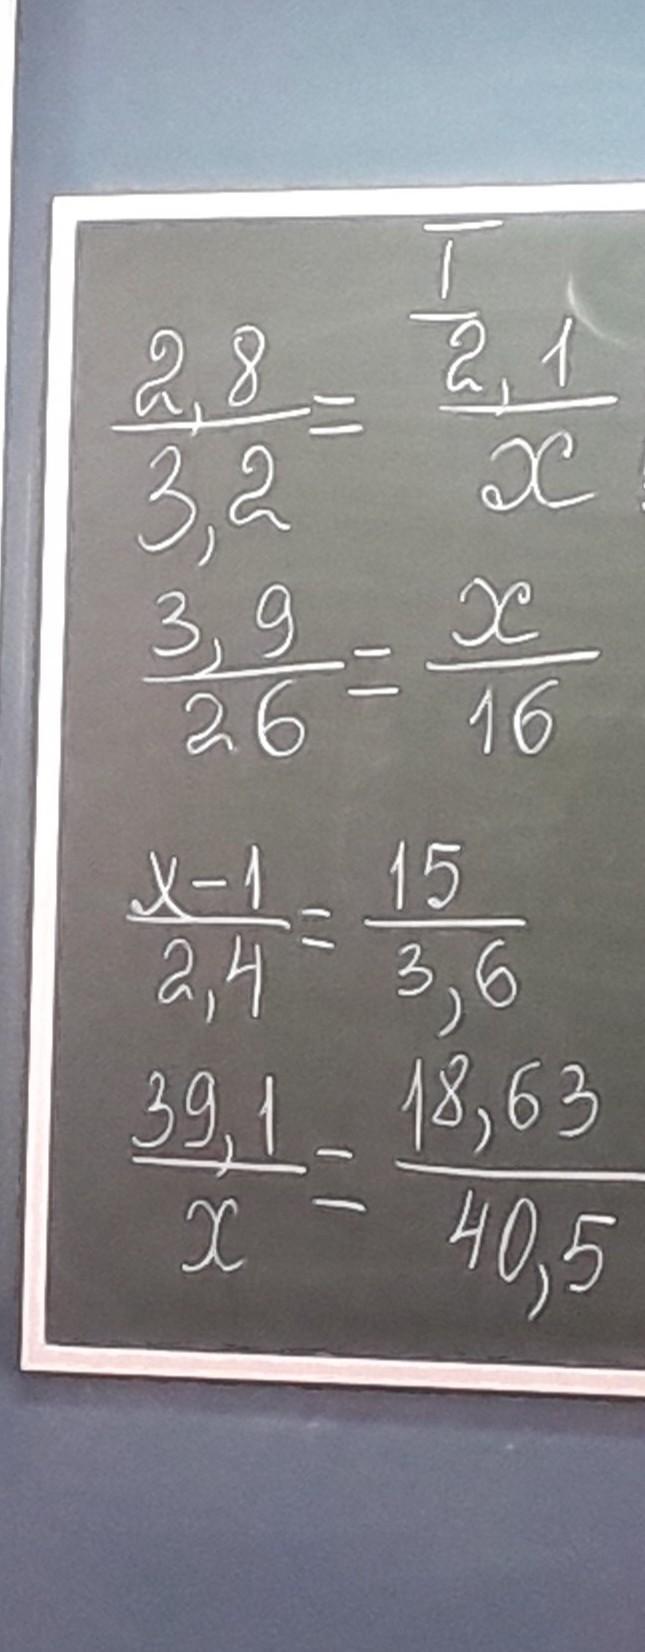 I
2,8/3,2 = 2,1/x
3,9/26 = x/16
x-1/2,4 = 15/3,6
39,1/x = 18,63/40,5